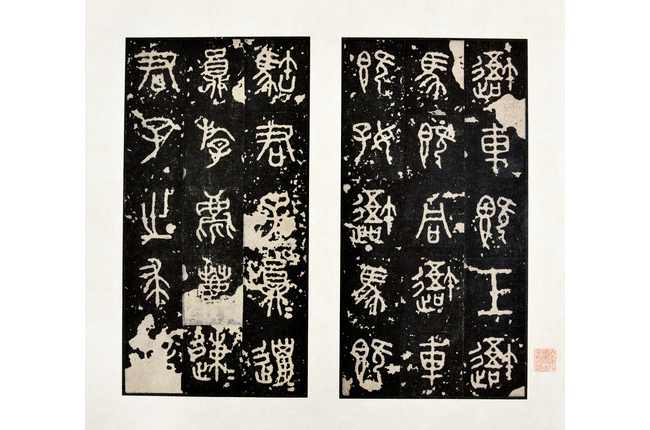 吾車既工吾
馬既同吾車
既好吾馬既
𩣡君子員邋
員斿麀鹿速
君子之求